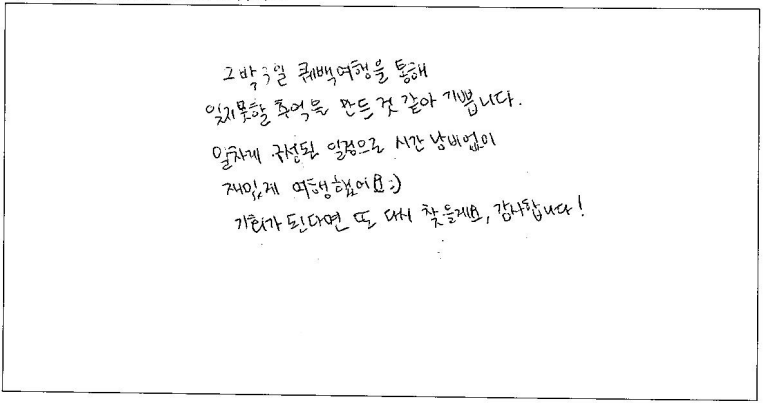 2박3일 퀘백여행을 통해
잊지못할 추억을 만든 것 같아 기쁩니다.
알차게 구성된 일정으로 시간 낭비없이
재밌게 여행했어요:)
기회가 된다면 또 다시 찾을게요, 감사합니다!